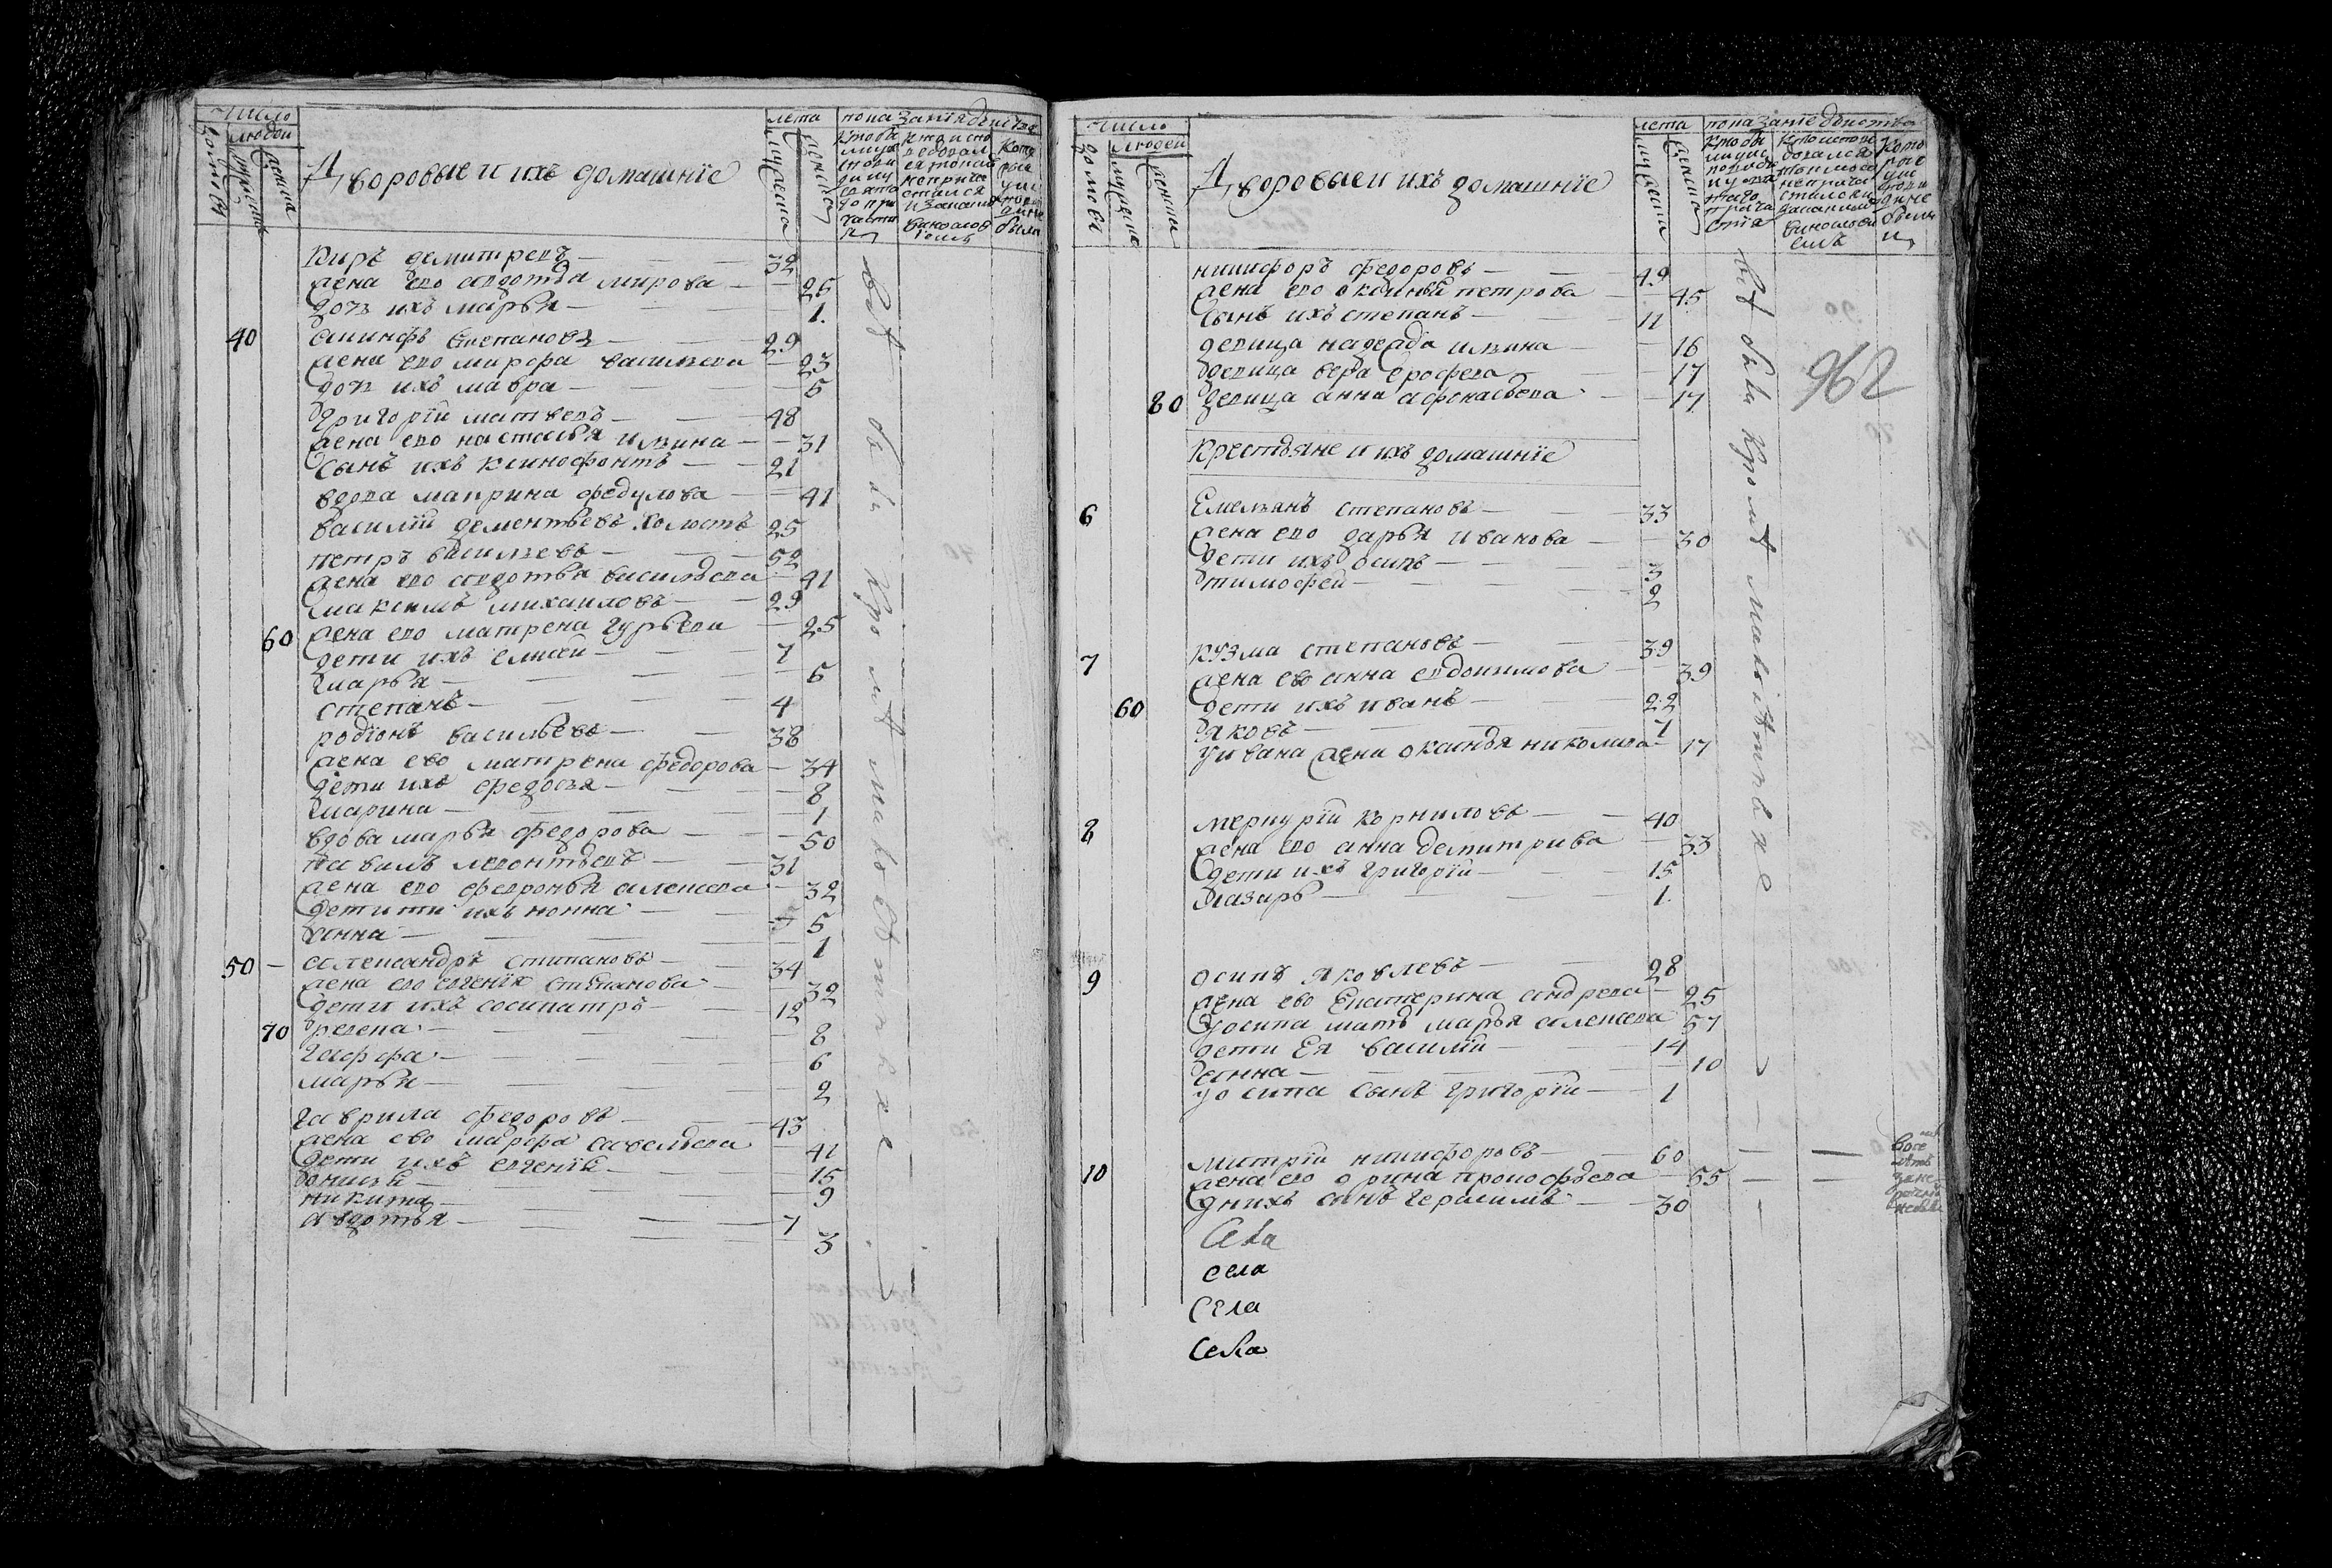 число
людей
домовъ
мужеска
женска
Дворовые и ихъ домашніе
лета
мужеска
женска
показанія действа
Киръ демитревъ — 32
жена ево авдотья мирова — 26
дочь ихъ марья — 1.
40 акинфъ степановъ — 29
жена ево марфа васильева — 23
дочь ихъ мавра — 5
григорій матвевъ — 48
жена ево настасья ильина — 31
сынъ ихъ ксинофонтъ — 21
вдова маприна федулова — 41
василій дементьевъ холостъ 25
петръ васильевъ — 52
жена ево авдотья васильева — 41
максимъ михаиловъ — 29
60 жена ево матрена гурьева — 25
дети ихъ елисей — 7
марья — 6
степанъ — 4
родіонъ васильевъ — 38
жена ево матрена федорова — 34
дети ихъ федосья — 8
марина — 1
вдова марья федорова — 50
павилъ леонтьевъ — 31
жена ево февронья алексева — 32
дети ихъ нонна — 5
анна — 1
50 — александръ стипановъ — 34
жена ево евгенія степанова — 32
дети ихъ сосипатръ — 12
70 ревека — 8
гаффа — 6
марья — 2
гаврила федоровъ — 43
жена ево марфа савельева — 41
дети ихъ евгенія — 15
анисья — 9
никита — 7
авдотья — 3
все были кроме малолетныхъ
число
людей
домовъ
мужеска
женска
Дворовые и ихъ домашніе
лета
мужеска
женска
показаніе действа
никифоръ федоровъ — 49
жена ево оксинья петрова — 45
сынъ ихъ степанъ — 11
девица надежда ильина — 16
девица вера ерофева — 17
80 девица анна афонасьева — 17
962
Крестьяне и ихъ домашніе
6 Емельянъ степановъ — 33
жена ево дарья иванова — 30
дети ихъ осипъ — 3
тимофей — 2
7 кузма степановъ — 39
жена ево анна евдокимова — 39
60 дети ихъ иванъ — 22
яковъ — 7
у ивана жена оксинья николаева 17
8 меркурій корниловъ — 40
жена ево анна демитрива — 33
дети ихъ григорій — 15
лазарь — 1.
9 осипъ яковлевъ — 28
жена ево Екатерина андрева — 25
у осипа мать марья алексева 57
дети Ея василій — 14
анна — 10
у осипа сынъ григорій — 1
10 митрій никифоровъ — 60
жена ево орина прокофьева 55
у нихъ сынъ герасимъ — 30
все были кроме малолетныхъ
Села
села
Села
Села